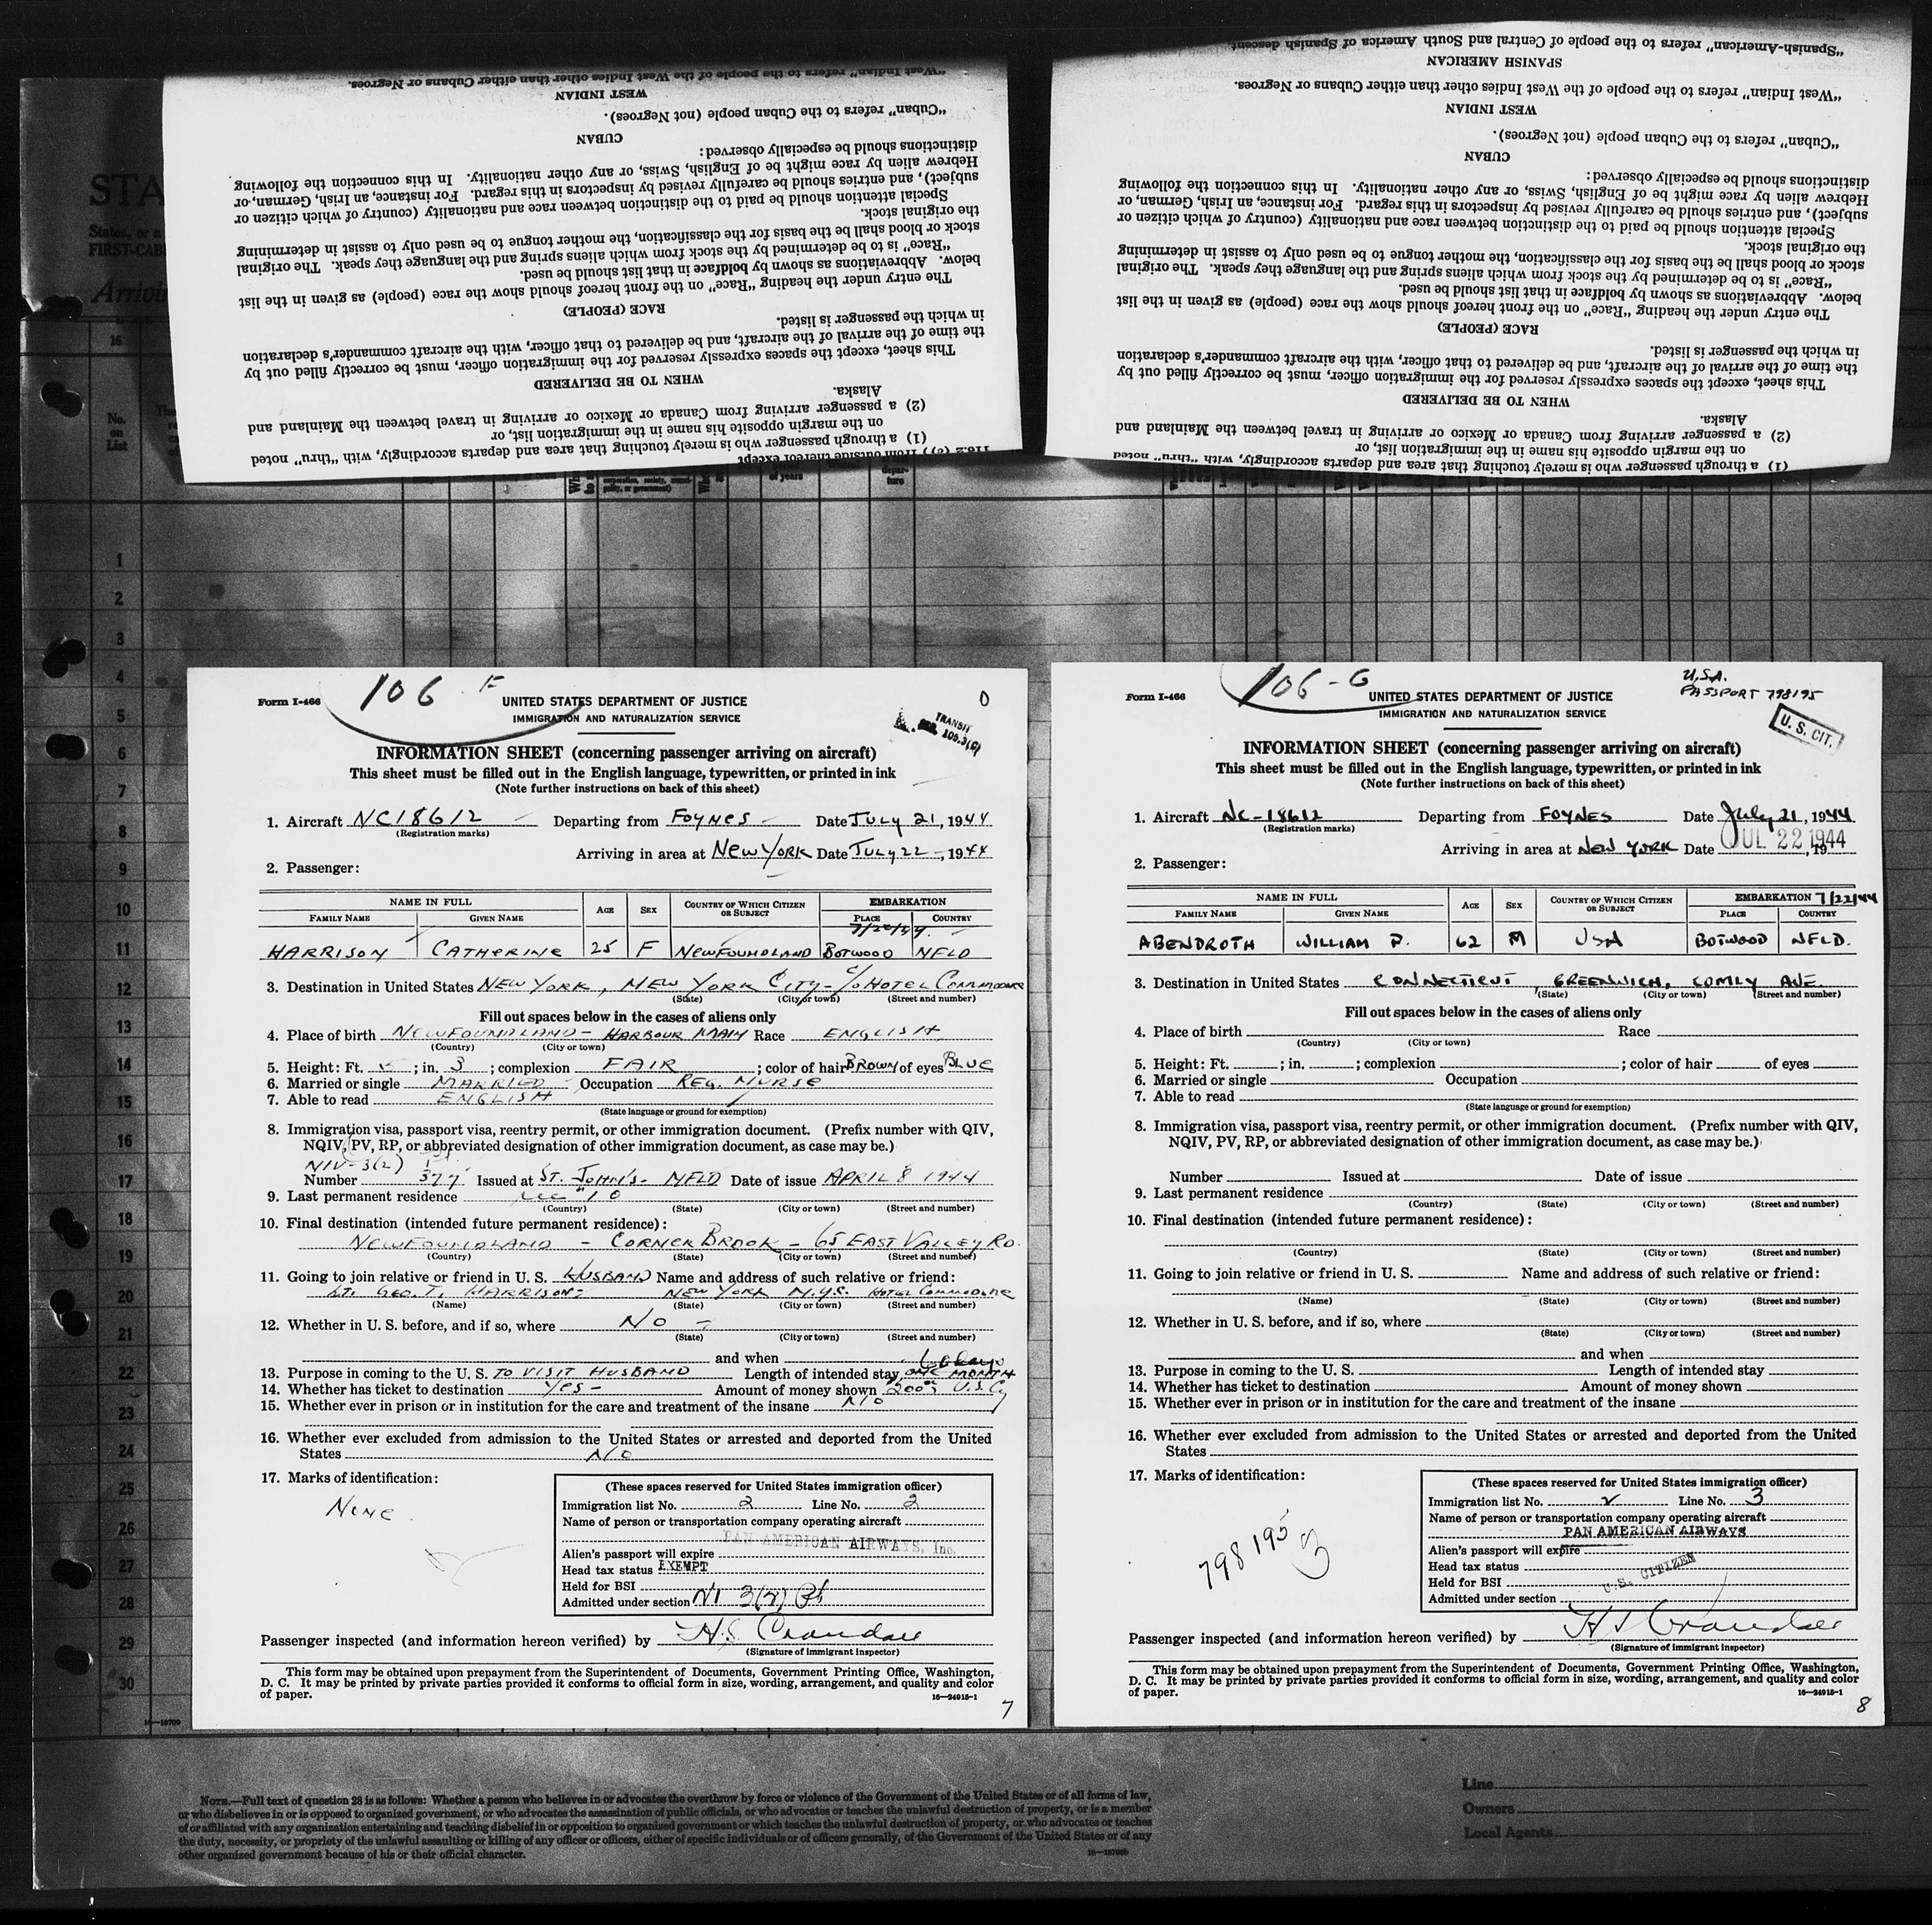 "Spanish-American" refers to the people of Central and South America of Spanish descent.
SPANISH AMERICAN
"West Indian" refers to the people of the West Indies other than either Cubans or Negroes.
WEST INDIAN
"Cuban" refers to the Cuban people (not Negroes).
CUBAN
distinctions should be especially observed:
Hebrew alien by race might be of English, Swiss, or any other nationality. In this connection the following
subject), and entries should be carefully revised by inspectors in this regard. For instance, an Irish, German, or
Special attention should be paid to the distinction between race and nationality (country of which citizen or
the original stock.
stock or blood shall be the basis for the classification, the mother tongue to be used only to assist in determining
"Race" is to be determined by the stock from which aliens spring and the language they speak. The original
below. Abbreviations as shown by boldface in that list should be used.
The entry under the heading "Race" on the front hereof should show the race (people) as given in the list
RACE (PEOPLE)
in which the passenger is listed.
the time of the arrival of the aircraft, and be delivered to that officer, with the aircraft commander's declaration
This sheet, except the spaces expressly reserved for the immigration officer, must be correctly filled out by
WHEN TO BE DELIVERED
Alaska.
(2) a passenger arriving from Canada or Mexico or arriving in travel between the Mainland and
on the margin opposite his name in the immigration list, or
(1) a through passenger who is merely touching that area and departs accordingly, with "thru" noted
STA
States, or a
FIRST-CAB
Arrivin
16
No.
on
List
1
2
3
4
5
6
7
8
9
10
11
12
13
14
15
16
17
18
19
20
21
22
23
24
25
26
27
28
29
30
106 F
0
Form I-466
UNITED STATES DEPARTMENT OF JUSTICE
IMMIGRATION AND NATURALIZATION SERVICE
TRANSIT
105.3(C)
INFORMATION SHEET (concerning passenger arriving on aircraft)
This sheet must be filled out in the English language, typewritten, or printed in ink
(Note further instructions on back of this sheet)
1. Aircraft NC18612 Departing from FOYNES Date JULY 21, 1944
(Registration marks)
Arriving in area at NEW YORK Date JULY 22, 1944
2. Passenger:
NAME IN FULL AGE SEX COUNTRY OF WHICH CITIZEN OR SUBJECT EMBARKATION
FAMILY NAME GIVEN NAME PLACE COUNTRY
7/22/44
HARRISON CATHERINE 25 F NEWFOUNDLAND BOTWOOD NFLD
3. Destination in United States NEW YORK, NEW YORK CITY - c/o HOTEL COMMODORE
(State) (City or town) (Street and number)
Fill out spaces below in the cases of aliens only
4. Place of birth NEWFOUNDLAND - HARBOUR MAIN Race ENGLISH
(Country) (City or town)
5. Height: Ft. 5; in. 3; complexion FAIR; color of hair BROWN of eyes BLUE
6. Married or single MARRIED Occupation REG. NURSE
7. Able to read ENGLISH
(State language or ground for exemption)
8. Immigration visa, passport visa, reentry permit, or other immigration document. (Prefix number with QIV,
NQIV, PV, RP, or abbreviated designation of other immigration document, as case may be.)
NIV-3(2)
Number 377 Issued at ST. JOHN'S - NFLD Date of issue APRIL 8 1944
9. Last permanent residence see #10
(Country) (State) (City or town) (Street and number)
10. Final destination (intended future permanent residence):
NEWFOUNDLAND - CORNER BROOK - 65 EAST VALLEY RD.
(Country) (State) (City or town) (Street and number)
11. Going to join relative or friend in U. S. HUSBAND Name and address of such relative or friend:
LT. GEO. T. HARRISON - NEW YORK N.Y.C. HOTEL COMMODORE
(Name) (State) (City or town) (Street and number)
12. Whether in U. S. before, and if so, where NO -
(State) (City or town) (Street and number)
and when
60 days
13. Purpose in coming to the U. S. TO VISIT HUSBAND Length of intended stay ONE MONTH
14. Whether has ticket to destination YES - Amount of money shown 200 U.S. Cy
15. Whether ever in prison or in institution for the care and treatment of the insane NO
16. Whether ever excluded from admission to the United States or arrested and deported from the United
States NO
17. Marks of identification:
NONE
(These spaces reserved for United States immigration officer)
Immigration list No. 2 Line No. 2
Name of person or transportation company operating aircraft
PAN AMERICAN AIRWAYS, Inc.
Alien's passport will expire
Head tax status EXEMPT
Held for BSI
Admitted under section NI 3(2)
Passenger inspected (and information hereon verified) by H.S. Crandall
(Signature of immigrant inspector)
This form may be obtained upon prepayment from the Superintendent of Documents, Government Printing Office, Washington,
D. C. It may be printed by private parties provided it conforms to official form in size, wording, arrangement, and quality and color
of paper.
16-24915-1
7
106-G
U.S.A.
PASSPORT 798195
Form I-466
UNITED STATES DEPARTMENT OF JUSTICE
IMMIGRATION AND NATURALIZATION SERVICE
U. S. CIT.
INFORMATION SHEET (concerning passenger arriving on aircraft)
This sheet must be filled out in the English language, typewritten, or printed in ink
(Note further instructions on back of this sheet)
1. Aircraft NC-18612 Departing from FOYNES Date July 21, 1944
(Registration marks)
Arriving in area at NEW YORK Date JUL 22 1944, 19
2. Passenger:
NAME IN FULL AGE SEX COUNTRY OF WHICH CITIZEN OR SUBJECT EMBARKATION 7/22/44
FAMILY NAME GIVEN NAME PLACE COUNTRY
ABENDROTH WILLIAM P. 62 M USA BOTWOOD NFLD.
3. Destination in United States CONNECTICUT, GREENWICH, COMLY AVE.
(State) (City or town) (Street and number)
Fill out spaces below in the cases of aliens only
4. Place of birth Race
(Country) (City or town)
5. Height: Ft. ; in. ; complexion ; color of hair of eyes
6. Married or single Occupation
7. Able to read
(State language or ground for exemption)
8. Immigration visa, passport visa, reentry permit, or other immigration document. (Prefix number with QIV,
NQIV, PV, RP, or abbreviated designation of other immigration document, as case may be.)
Number Issued at Date of issue
9. Last permanent residence
(Country) (State) (City or town) (Street and number)
10. Final destination (intended future permanent residence):
(Country) (State) (City or town) (Street and number)
11. Going to join relative or friend in U. S. Name and address of such relative or friend:
(Name) (State) (City or town) (Street and number)
12. Whether in U. S. before, and if so, where
(State) (City or town) (Street and number)
and when
13. Purpose in coming to the U. S. Length of intended stay
14. Whether has ticket to destination Amount of money shown
15. Whether ever in prison or in institution for the care and treatment of the insane
16. Whether ever excluded from admission to the United States or arrested and deported from the United
States
17. Marks of identification:
798195
(These spaces reserved for United States immigration officer)
Immigration list No. 2 Line No. 3
Name of person or transportation company operating aircraft
PAN AMERICAN AIRWAYS
Alien's passport will expire
Head tax status
Held for BSI U.S. CITIZEN
Admitted under section
Passenger inspected (and information hereon verified) by H S Crandall
(Signature of immigrant inspector)
This form may be obtained upon prepayment from the Superintendent of Documents, Government Printing Office, Washington,
D. C. It may be printed by private parties provided it conforms to official form in size, wording, arrangement, and quality and color
of paper.
16-24915-1
8
NOTE.—Full text of question 28 is as follows: Whether a person who believes in or advocates the overthrow by force or violence of the Government of the United States or of all forms of law,
or who disbelieves in or is opposed to organized government, or who advocates the assassination of public officials, or who advocates or teaches the unlawful destruction of property, or is a member
of or affiliated with any organization entertaining and teaching disbelief in or opposition to organized government or which teaches the unlawful destruction of property, or who advocates or teaches
the duty, necessity, or propriety of the unlawful assaulting or killing of any officer or officers, either of specific individuals or of officers generally, of the Government of the United States or of any
other organized government because of his or their official character.
Line
Owners
Local Agents